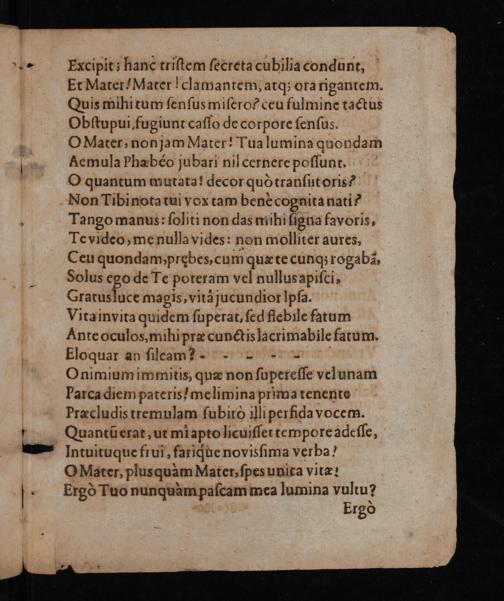 Excipit; hanc tristem secreta cubilia condunt,
Et Mater! Mater! clamantem, atq; ora rigantem.
Quis mihi tum sensus misero? ceu fulmine tactus
Obstupui, fugiunt casso de corpore sensus.
O Mater, non jam Mater! Tua lumina quondam
Aemula Phæbéo jubari nil cernere possunt.
O quantum mutata! decor quò transiit oris?
Non Tibi nota tui vox tam benè cognita nati?
Tango manus: soliti non das mihi signa favoris,
Te video, me nulla vides: non molliter aures,
Ceu quondam, prębes, cum quæ te cunq; rogabā,
Solus ego de Te poteram vel nullus apisci,
Gratus luce magis, vitâ jucundior Ipsa.
Vita invita quidem superat, sed flebile fatum
Ante oculos, mihi præ cunctis lacrimabile fatum.
Eloquar an sileam? - - - - -
O nimium immitis, quæ non superesse vel unam
Parca diem pateris! me limina prima tenente
Præcludis tremulam subitò illi perfida vocem.
Quantū erat, ut mî apto licuisset tempore adesse,
Intuituque frui, farique novissima verba!
O Mater, plus quàm Mater, spes unica vitæ!
Ergò Tuo nunquàm pascam mea lumina vultu?
Ergò